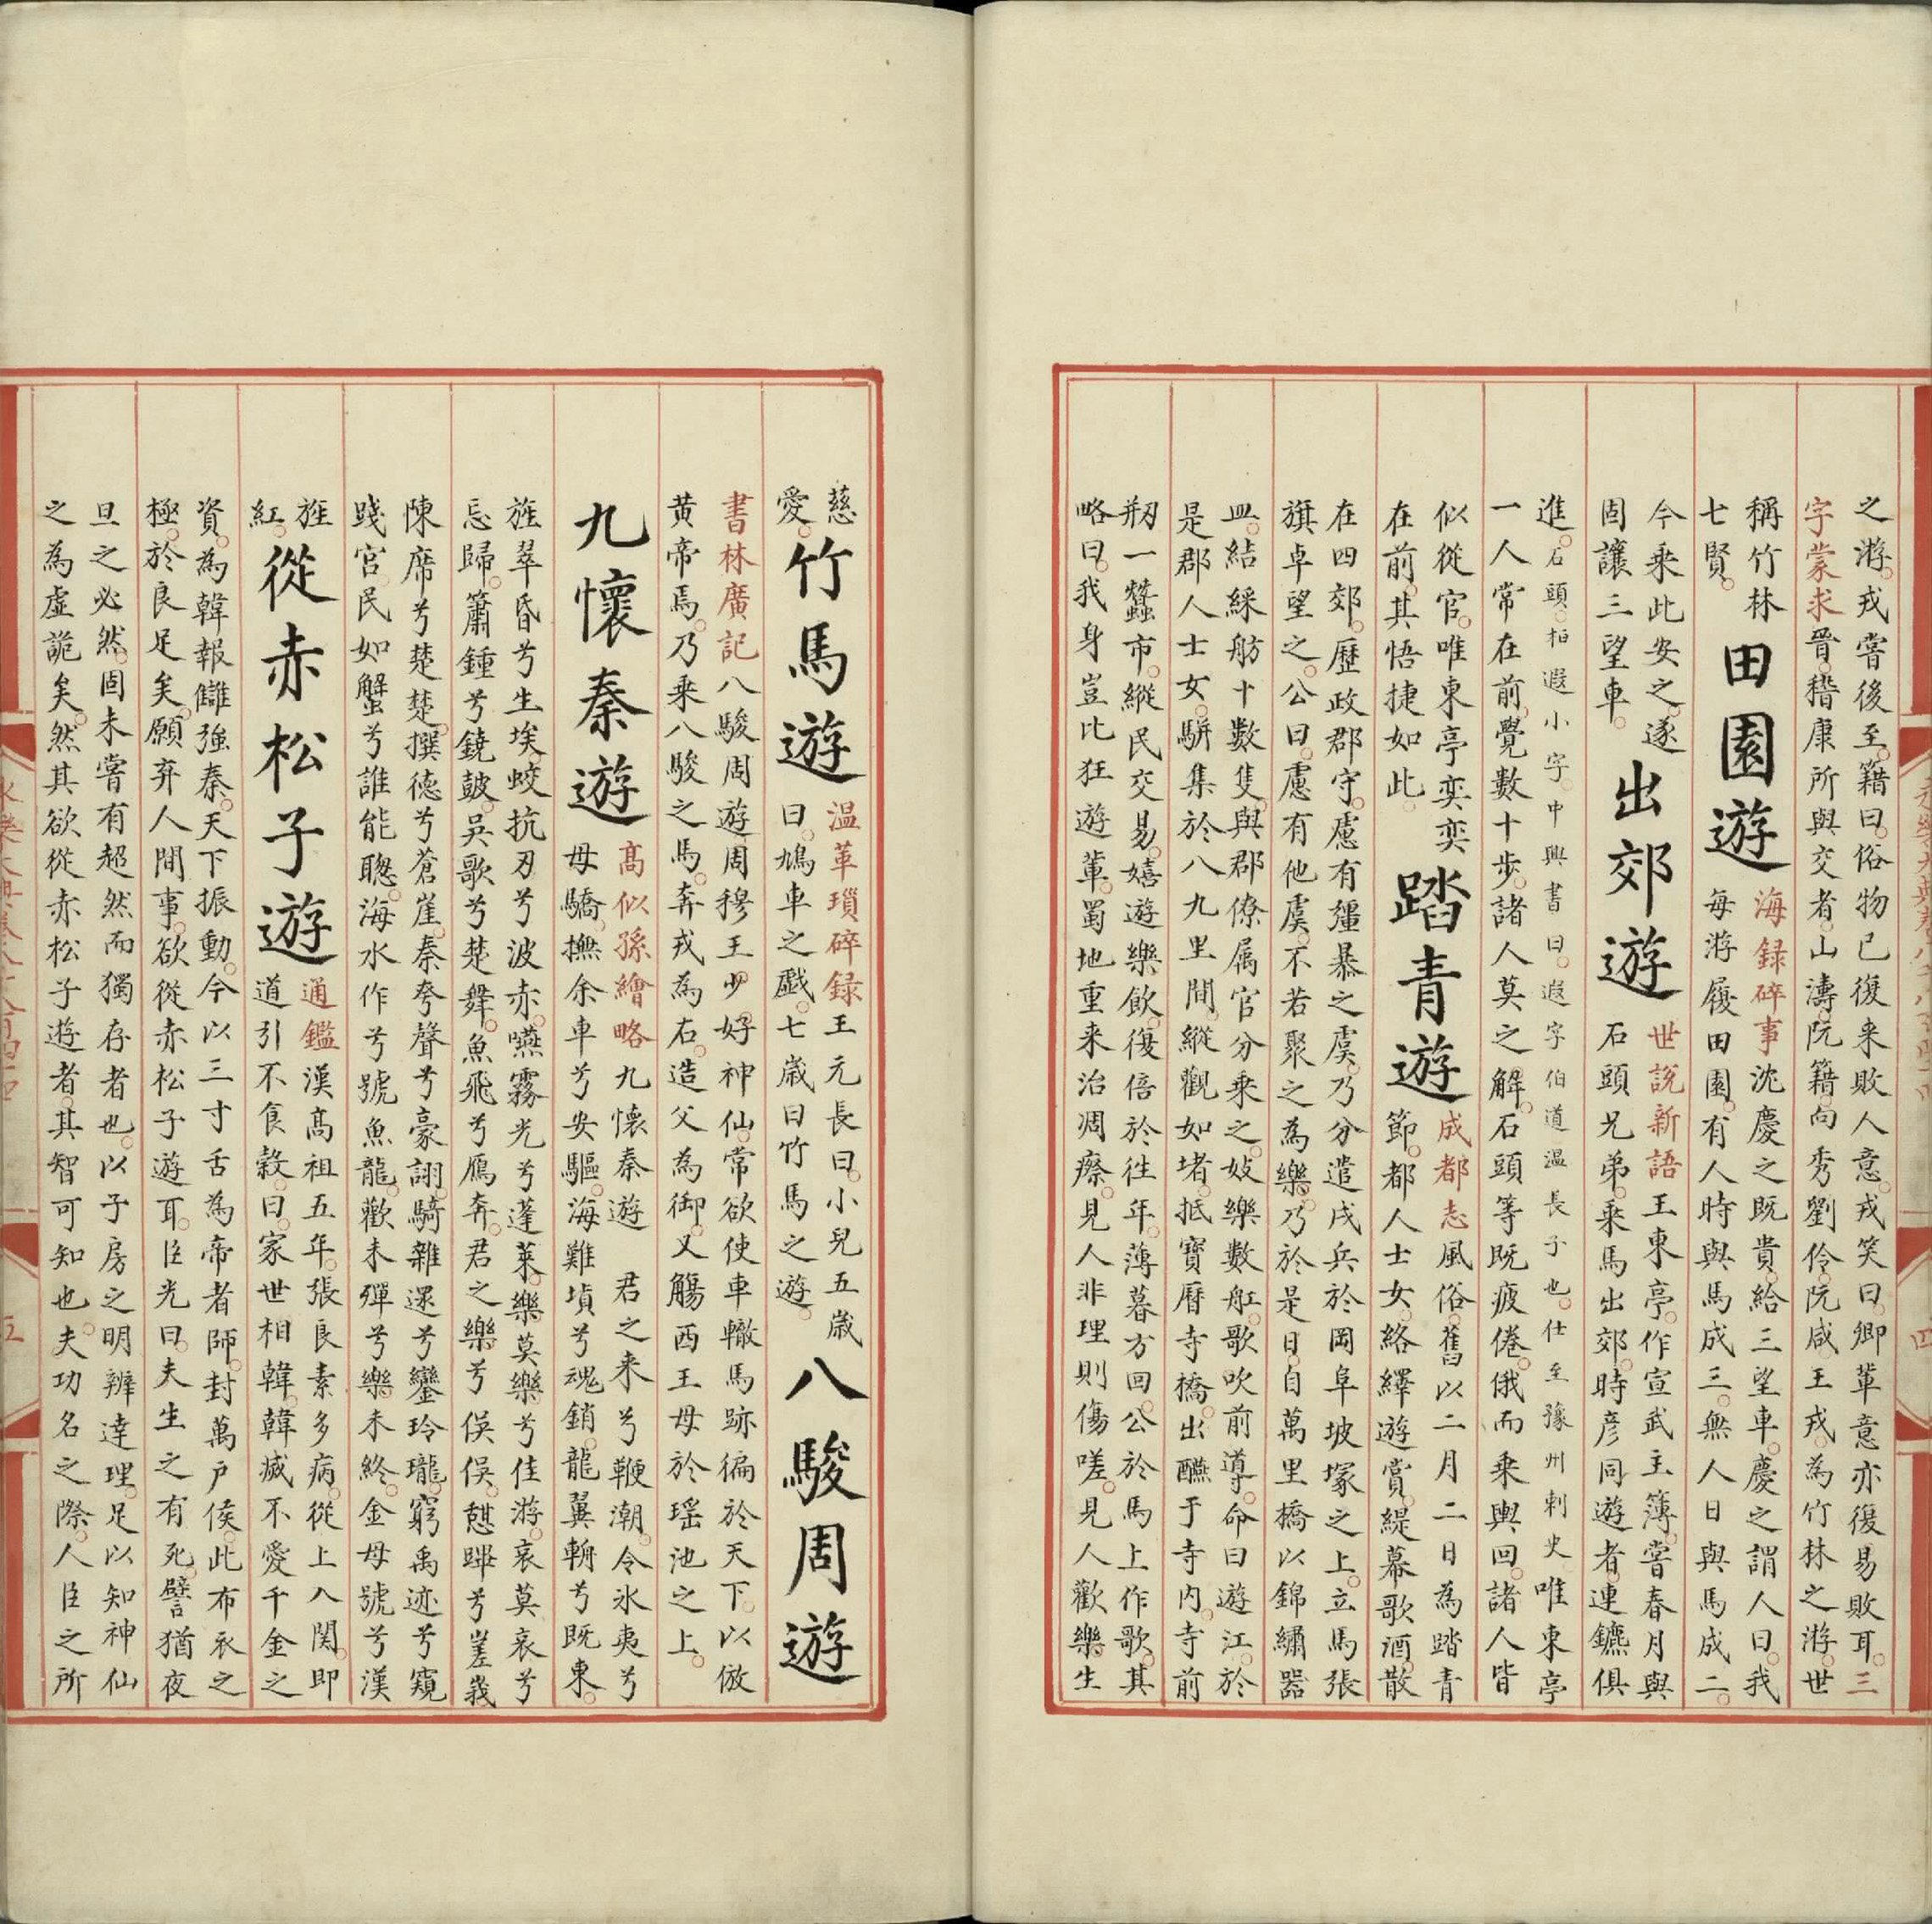 之游。戎嘗後至。籍曰。俗物已復来敗人意。戎笑曰。卿輩意亦復易敗耳。三
字蒙求晉。嵇康所與交者。山濤。阮籍。向秀。劉伶。阮咸。王戎。為竹林之游。世
稱竹林
七賢。
田園遊
海録碎事沈慶之既貴。給三望車。慶之謂人曰。我
每游履田園。有人時與馬成三。無人日與馬成二。
今乗此安之。遂
固讓三望車。
出郊遊
世說新語王東亭。作宣武主簿。嘗春月與
石頭兄弟。乗馬出郊。時彦同遊者。連鑣俱
進。石頭。桓遐小字。中興書曰。遐字伯道溫長子也。仕至豫州刺史唯東亭
一人常在前。覺數十歩。諸人莫之解。石頭等既疲倦。俄而乗輿回。諸人皆
似從官。唯東亭奕奕
在前。其悟捷如此。
踏青遊
成都志風俗。舊以二月二日為踏青
節。都人士女。絡繹遊賞。緹幕歌酒。散
在四郊。歷政郡守。慮有彊暴之虞。乃分遣戍兵於岡阜坡塚之上。立馬張
旗卓望之。公曰。慮有他虞。不若聚之為樂。乃於是日。自萬里橋以錦繡器
皿。結綵舫十數隻。與郡僚属官分乗之。妓樂數舡。歌吹前導。命曰遊江。於
是郡人士女。駢集於八九里間。縱觀如堵。抵寶曆寺橋。出醼于寺内。寺前
剏一蠶市。縱民交易。嬉遊樂飲。復倍於往年。薄暮方回。公於馬上作歌。其
略曰。我身豈比狂遊輩。蜀地重来治凋瘵。見人非理則傷嗟。見人歡樂。生
慈
愛。
竹馬遊
溫革瑣碎録王元長曰。小兒五歲
曰。鳩車之戲。七歲曰竹馬之遊。
八駿周遊
書林廣記八駿周遊周穆王少。好神仙。常欲使車轍馬跡徧於天下。以倣
黃帝焉。乃乗八駿之馬。奔戎為右。造父為御。又觴西王母於瑶池之上。
九懷秦遊
髙似孫繪略九懷秦遊 君之来兮鞭潮。令氷夷兮
母驕。撫余車兮安驅。海難塡兮魂銷。龍翼輈兮既東。
旌翠昏兮生埃。蛟抗刃兮波赤。嚥霧光兮蓬莱。樂莫樂兮佳游。哀莫哀兮
忘歸。簫鍾兮鐃皷。吳歌兮楚舞。魚飛兮鴈奔。君之樂兮俣俣。憇蹕兮峩峩
陳席兮楚楚。撰徳兮蒼崖。秦夸聲兮豪詡。騎雜還兮鑾玲瓏。窮禹迹兮窺
踐宮。民如蟹兮誰能聰。海水作兮號魚龍。歡未殫兮樂未終。金母號兮漢
旌
紅。
從赤松子遊
通鑑漢髙祖五年。張良素多病。從上入関。即
道引不食榖。曰。家世相韓。韓滅不愛千金之
資。為韓報讎强秦。天下振動。今以三寸舌為帝者師。封萬戶侯。此布衣之
極。於良足矣。願弃人間事。欲從赤松子遊耳。臣光曰。夫生之有死。譬猶夜
旦之必然。固未嘗有超然而獨存者也。以子房之明辨達理。足以知神仙
之為虛詭矣。然其欲從赤松子遊者。其智可知也。夫功名之際。人臣之所